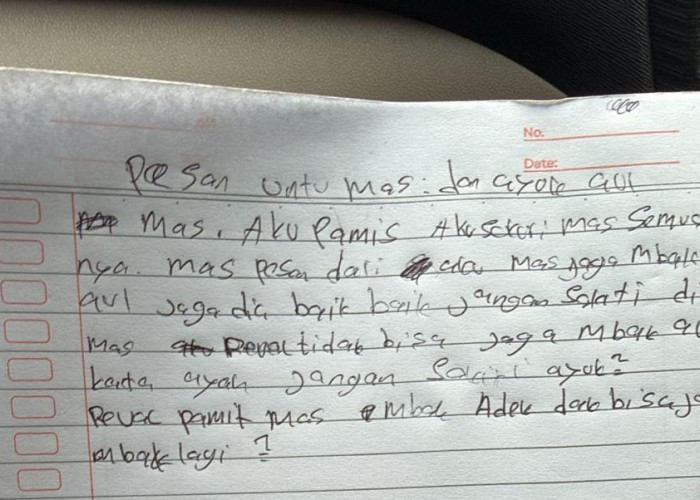 No.
Date:
Pesan untu mas: dan ayote aul
Mas. Aku Pamis Aku mas Semus
nya. mas pesan dari mas jaga mbak
aul jaga dia baik baik jangan Solati di
mas tidak bisa jaga mbak au
kata ayah jangan ayok?
Revac pamit mas mbak Adek dak bisa ja
mbak lagi?